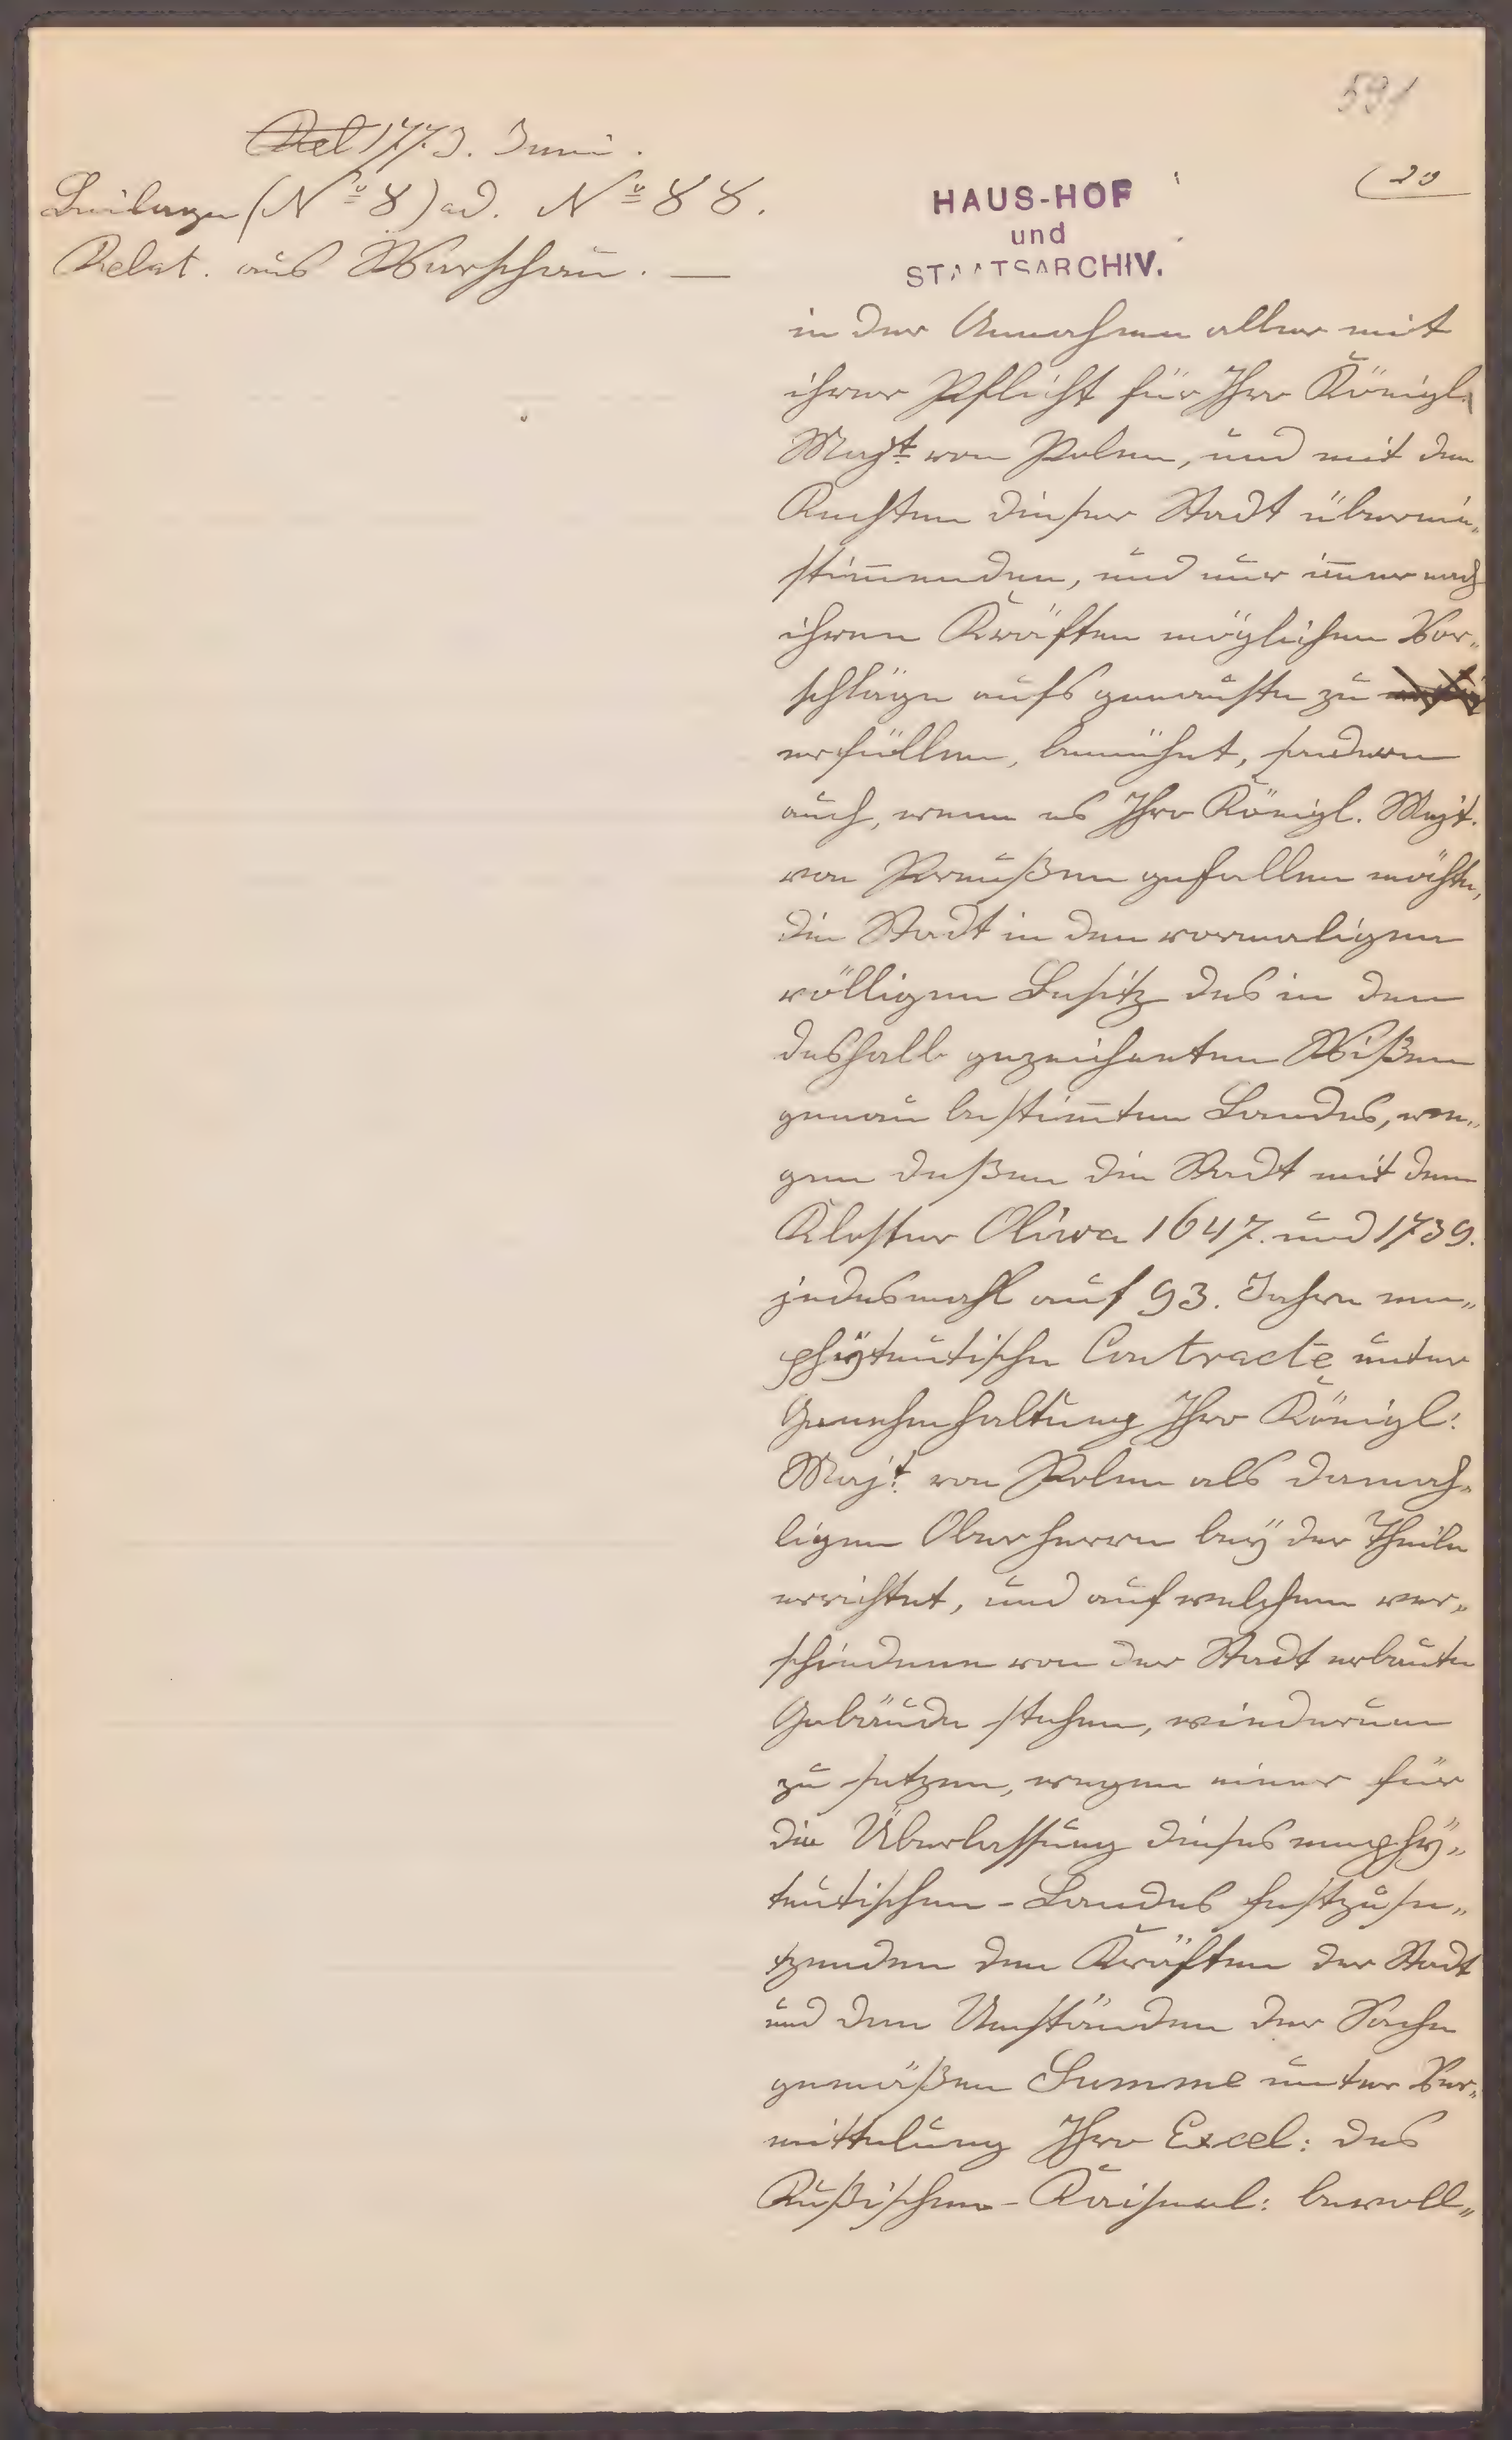 591
Rel 1773. Juni.
Beilage (No 8) ad. No 88.
Relat. aus Warschau. —
(20
HAUS-HOF
und
STAATSARCHIV.
in der Annahme aller mit
ihrer Pflicht für Ihro Königl.
Majt. von Polen, und mit den
Rechten dieser Stadt überein„
stim̄enden, und nur im̄er nach
ihren Kräften möglichen Vor„
schläge aufs genaueste zu
erfüllen, bemühet, sondern
auch, wenn es Ihro Königl. Majt.
von Preußen gefallen möchte,
die Stadt in den vormaligen
völligen Besitz des in dem
deshalb gezeichneten Rißen
genau bestim̄ten Landes, we„
gen deßen die Stadt mit dem
Kloster Oliwa 1647. und 1739.
jedesmahl auf 93. Jahre em„
phÿteutische Contracte unter
Genehmhaltung Ihro Königl:
Majt. von Polen als damah„
ligen Oberherrn beÿder Theile
errichtet, und auf welchem ver„
schiedene von der Stadt erbaute
Gebäude stehen, wiederum
zu setzen, wegen einer für
die Überlassung dieses emphÿ„
teutischen-Landes festzuse„
tzenden den Kräften der Stadt
und den Umständen der Sache
gemäßen Summe unter Ver„
mittelung Ihro Excel: des
Rußischen-Kaiserl: bevoll„